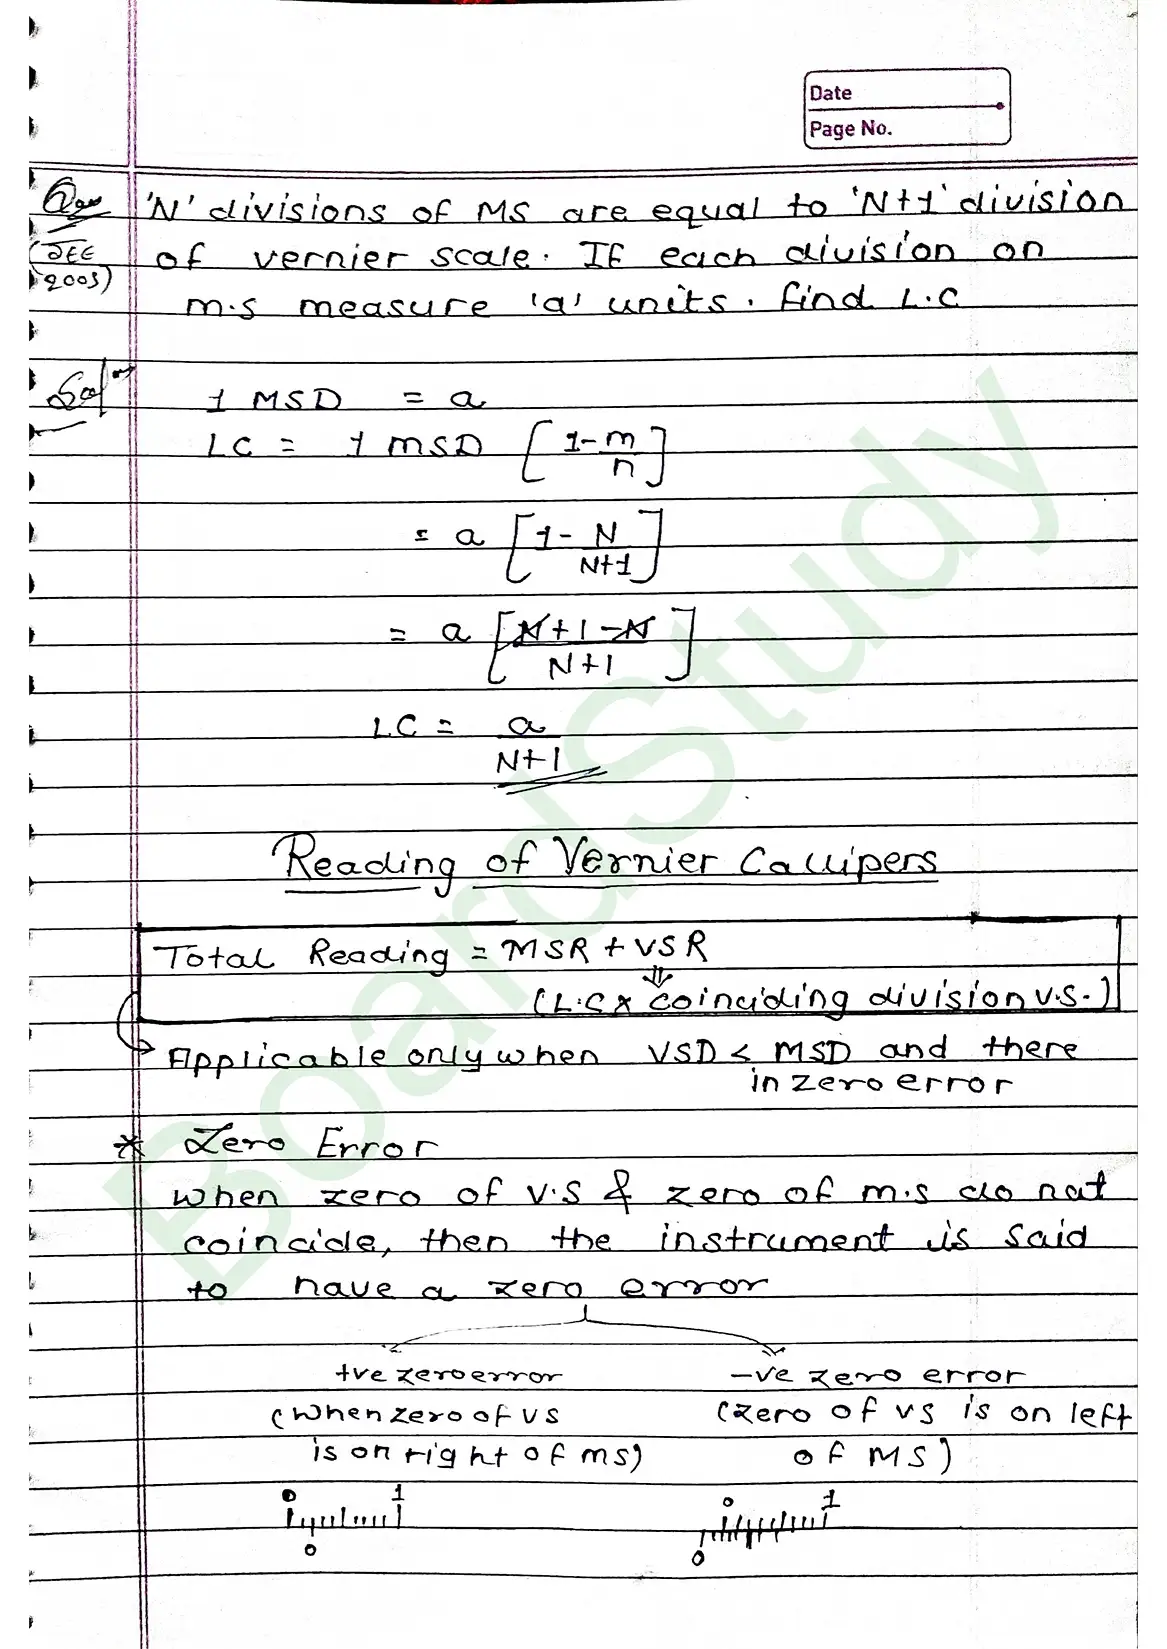 Date
Page No.
Ques 'N' divisions of MS are equal to 'N+1' division
(JEE of vernier scale. If each division on
2003) m.s measure 'a' units. find L.C
Sol^n 1 MSD = a
LC = 1 MSD [1-m/n]
= a [1- N/N+1]
= a [N+1-N/N+1]
L.C = a/N+1
Reading of Vernier Callipers
Total Reading = MSR + VSR
⇓
(L.C x coinciding division V.S.)
Applicable only when VSD < MSD and there
in zero error
* Zero Error
when zero of V.S & zero of m.s do not
coincide, then the instrument is said
to have a zero error
+ve zero error -ve zero error
(when zero of vs (zero of vs is on left
is on right of ms) of MS)
0 1 0 1
0 0
BoardStudy